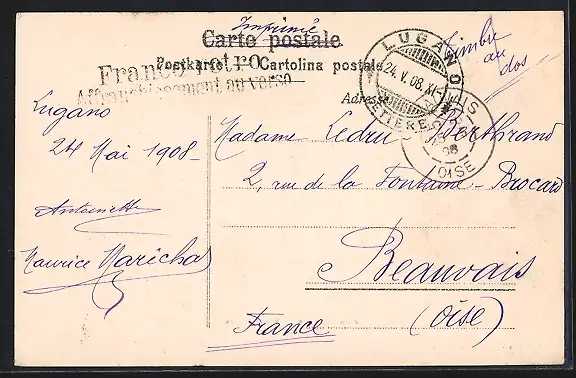 Imprimé
Carte postale
Postkarte — Cartolina postale
Franco retro
Affranchissement au verso
Timbre
au
dos
LUGANO
24.V.08.XI-
OISE
Adresse
Lugano
24 Mai 1908-
Antoinette
Maurice Marichal
Madame Ledru Berthrand
2, rue de la Fontaine-Brocard
Beauvais
(Oise)
France